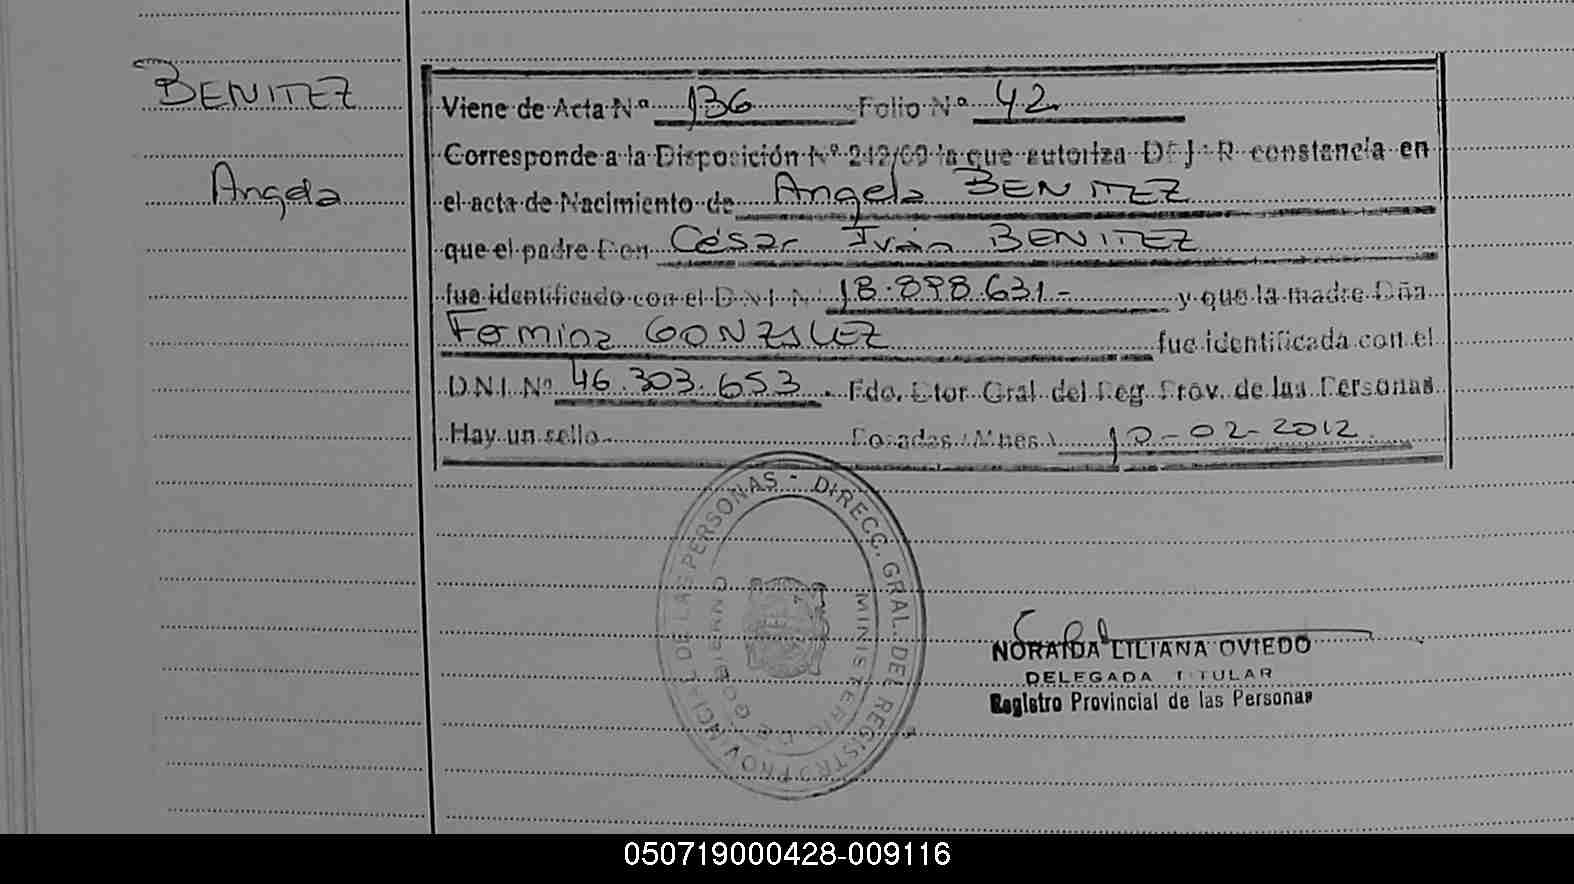 BENITEZ
Angela
Viene de Acta Nº 136 Folio Nº 42
Corresponde a la Disposición Nº 242/69 la que autoriza DEJAR constancia en
el acta de Nacimiento de Angela BENITEZ
que el padre Don César Iván BENITEZ
fue identificado con el D.N.I. Nº 18.898.631- y que la madre Dña
Fermina GONZALEZ fue identificada con el
D.N.I. Nº 46.303.653. Fdo. Dtor Gral. del Reg. Prov. de las Personas
Hay un sello. Posadas (Mnes) 10-02-2012
DIRECC. GRAL. DEL REGISTRO PROVINCIAL DE LAS PERSONAS -
MINISTERIO DE GOBIERNO
NORAIDA LILIANA OVIEDO
DELEGADA TITULAR
Registro Provincial de las Personas
050719000428-009116